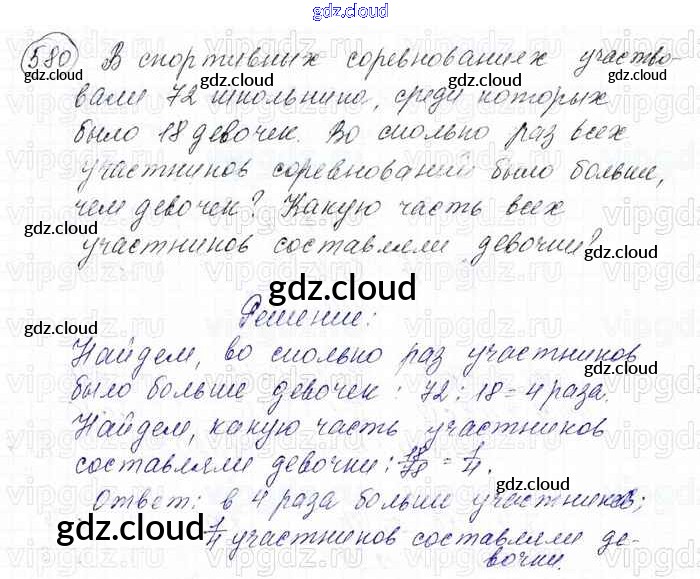 gdz.cloud
580 В спортивных соревнованиях участво-
вали 72 школьника, среди которых
было 18 девочек. Во сколько раз всех
участников соревнований было больше,
чем девочек? Какую часть всех
участников составляли девочки?
Решение:
Найдем, во сколько раз участников
было больше девочек: 72 : 18 = 4 раза.
Найдем, какую часть участников
составляли девочки: 18/78 = 1/4.
Ответ: в 4 раза больше участников;
1/4 участников составляли де-
вочки.